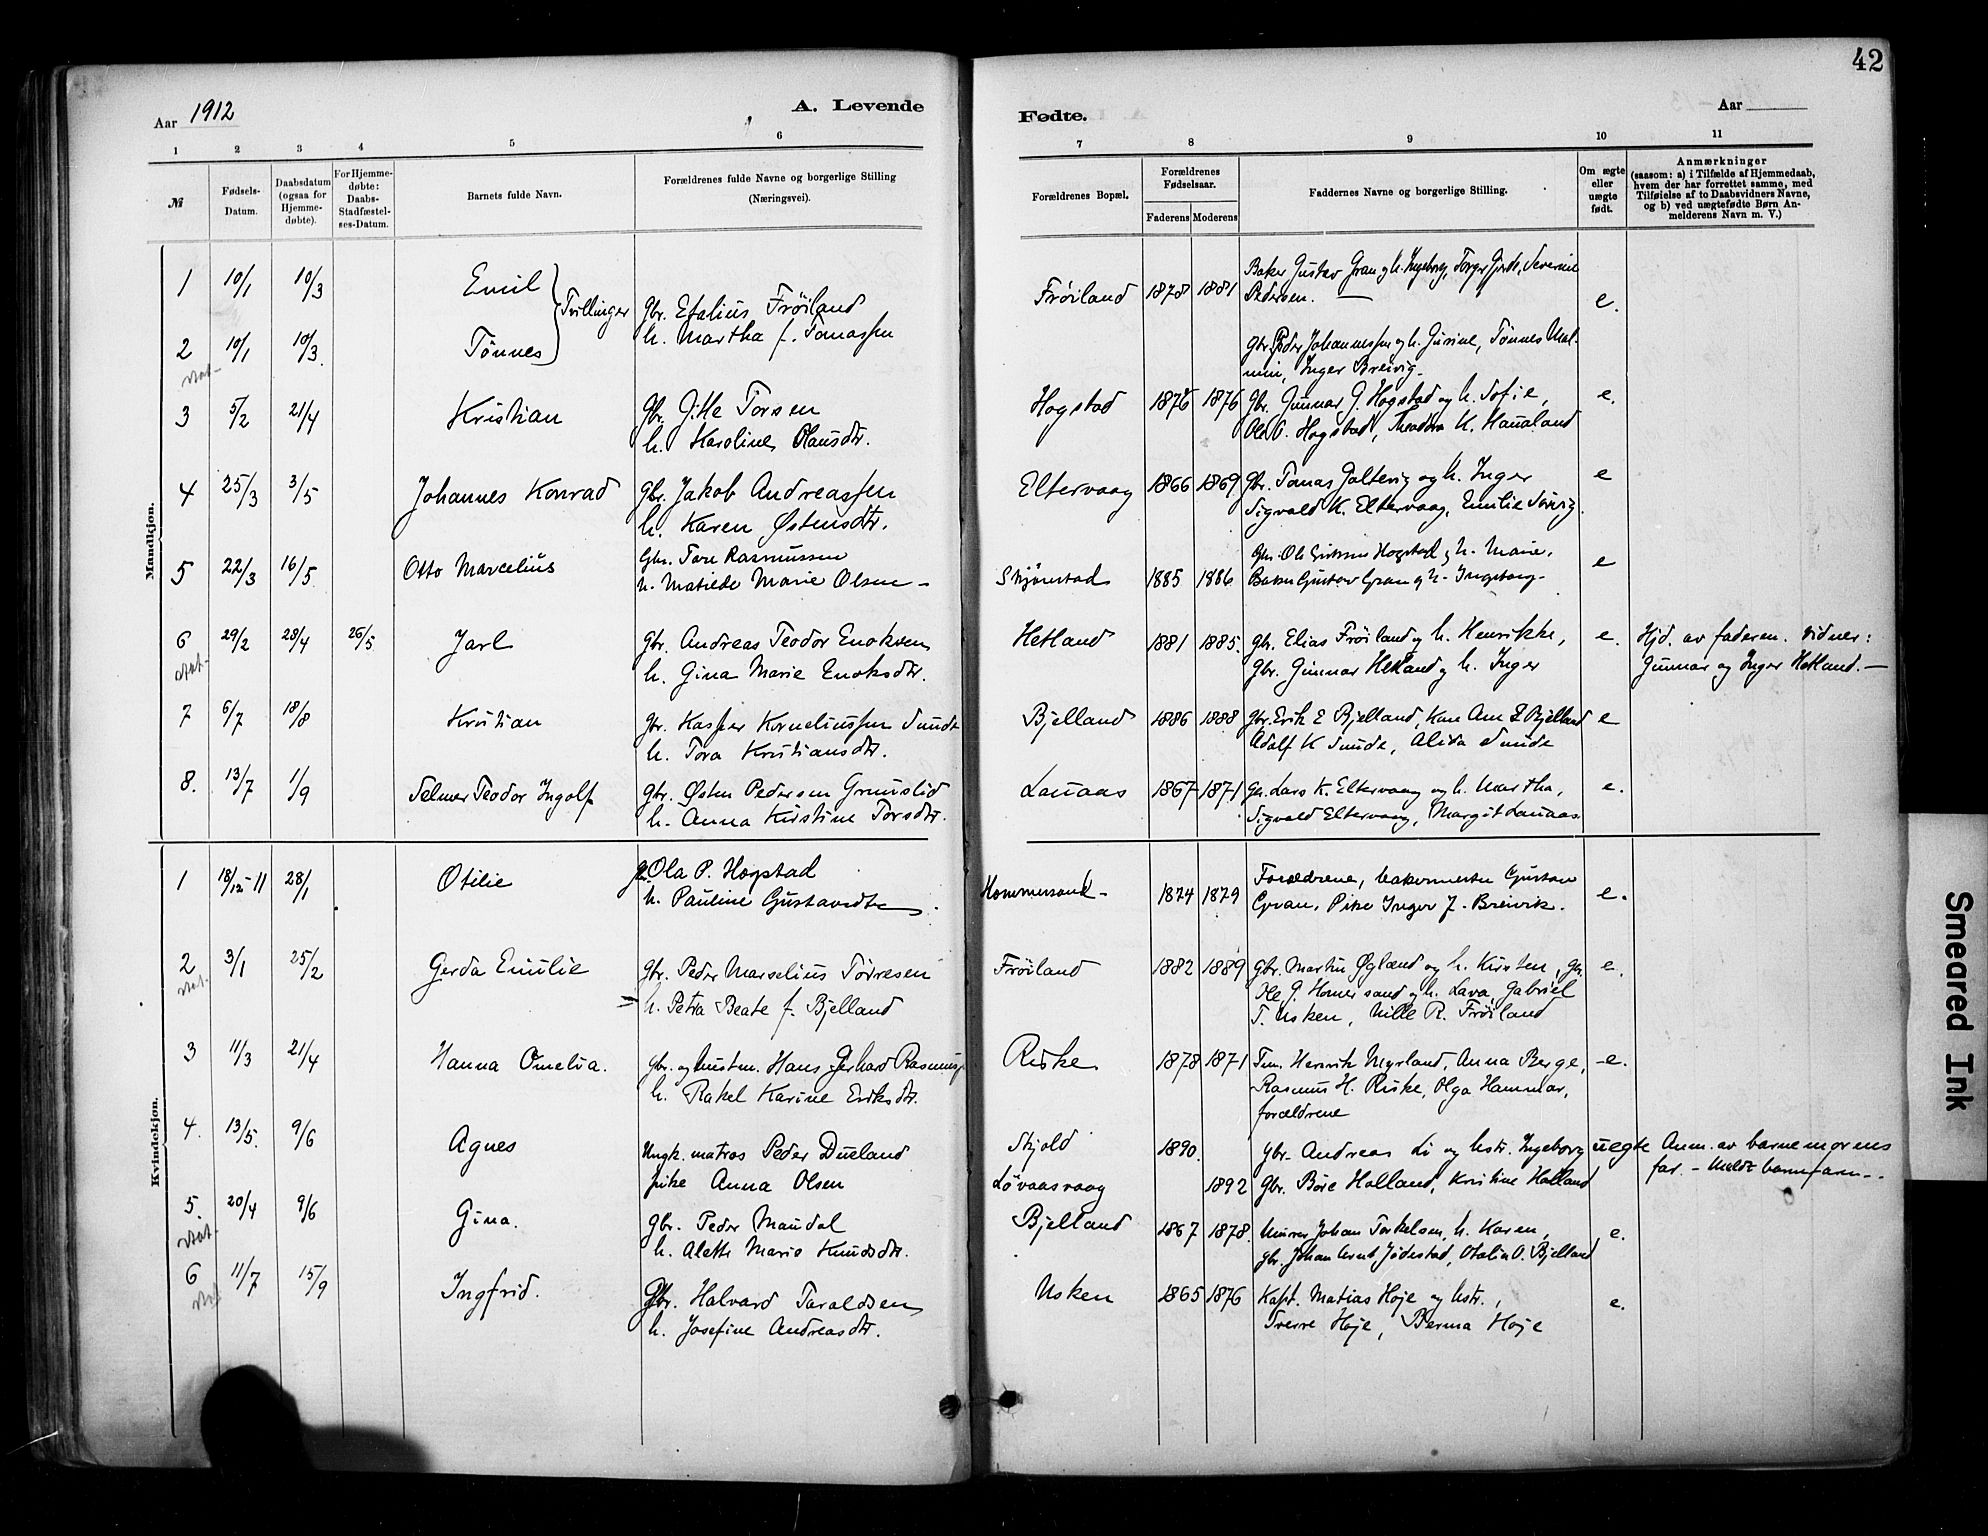 42
Aar 1912
A. Levende
Fødte.
Aar
1 2 3 4 5 6 7 8 9 10 11
№
Fødsels-
Datum.
Daabsdatum
(ogsaa for
Hjemme-
døbte).
For Hjemme-
døbte:
Daabs-
Stadfæstel-
ses-Datum.
Barnets fulde Navn.
Forældrenes fulde Navne og borgerlige Stilling
(Næringsvei).
Forældrenes Bopæl.
Forældrenes
Fødselsaar.
Faderens Moderens
Faddernes Navne og borgerlige Stilling.
Om ægte
eller
uægte
født.
Anmærkninger
(saasom: a) i Tilfælde af Hjemmedaab,
hvem der har forrettet samme, med
Tilføielse af to Daabsvidners Navne,
og b) ved uægtefødte Børn An-
melderens Navn m. V.)
Mandkjøn.
1 10/1 10/3 Emil
Tvillinger
gbr. Efalius Frøiland
h. Martha f. Tomassen
Frøiland 1878 1881
Baker Gustav Gran og h. Ingeborg, Severine
Pedersen. —
e.
2 10/1 10/3 Tønnes
gbr. Peder Johannessen og h. Gurine, Tønnes Mal-
min, Inger Breivig.
3 5/2 21/4 Kristian
gbr. Gitle Torsen
h. Karoline Olausdtr.
Hogstad 1876 1876
gbr. Gunnar G. Hogstad og h. Sofie,
Ole O. Hogstad, Theodora K. Haualand
e.
4 25/3 3/5 Johannes Konrad
gbr. Jakob Andreassen
h. Karen Østensdtr.
Eltervaag 1866 1869
gbr. Tomas Galtevig og h. Inger
Sigvald K. Eltervaag, Emilie
e
5 22/3 16/5 Otto Marcelius
Gbr. Tore Rasmussen
h. Matilde Marie Olsen -
Skjørestad 1885 1886
Gbr. Ole Eriksen Hogstad og h. Marie,
Baker Gustav Gran og h. Ingeborg.
e
6 29/2 28/4 26/5 Jarl
gbr. Andreas Teodor Enoksen
h. Gina Marie Enoksdtr.
Hetland 1881 1885.
gbr. Elias Frøiland og h. Henrikke,
Gbr. Gunnar Hetland og h. Inger
e.
Hjd. av faderen. Vidner:
Gunnar og Inger Hetland. —
7 6/7 18/8 Kristian
gbr. Kasper Korneliussen Sunde
h. Tora Kristiansdtr.
Bjelland 1886 1888
gbr. Erik E Bjelland, Kone Ane E Bjelland
Adolf K Sunde, Alida Sunde
e
8. 13/7 1/9 Selmer Teodor Ingolf
gbr. Østen Pedersen Grunslid
h. Anna Kristine Torsdtr.
Lauaas 1867 1871
Gbr. Lars K. Eltervaag og h. Martha,
Sigvald Eltervaag, Margit Lauaas.
e.
Kvindekjøn.
1 18/12-11 28/1 Otilie
gbr. Ola P. Hogstad
h. Pauline Gustavsdtr.
Hommersand- 1874 1879
Forældrene, bakermester Gustav
Gran, Pike Inger J. Breivik.
e.
2 3/1 25/2 Gerda Emilie
gbr. Peder Marselius Tørresen
h. Petra Beate f. Bjelland
Frøiland 1882 1889
gbr. Martin Øgland og h. Kirsten, gbr.
Ole G. Homersand og h. Lava, Gabriel
T. Usken, Nille R. Frøiland
e.
3 11/3 21/4 Hanna Omelia.
gbr. og Hans Gerhard Rasmuss.
h. Rakel Karine Eriksdtr.
Riske 1878 1871
Tm. Henrik Myrland, Anna Berge,
Rasmus H. Riske, Olga Hammar,
forældrene
-e.
4. 13/5. 9/6 Agnes
Ungk. matros Peder Dueland
pike Anna Olsen
Skjold 1890.
Løvaasvaag 1892
gbr. Andreas Li og hstr. Ingeborg
Gbr. Børe Holland, Kristine Holland
uegte
Anm. av barnemorens
far. -
5. 20/4 9/6 Gina.
gbr. Peder Maudal
h. Alette Marie Knudsdtr.
Bjelland 1867 1878.
Murer Johan Torkelsen, h. Karen,
gbr. Johan Arnt Jødestad, Otalia O. Bjelland
e.
6 11/7 15/9 Ingfrid.
Gbr. Halvard Taraldsen
h. Josefine Andreasdtr.
Usken 1865 1876
Kapt. Matias Høje og hstr.,
Sverre Høje, Berma Høje
e.
Smeared Ink